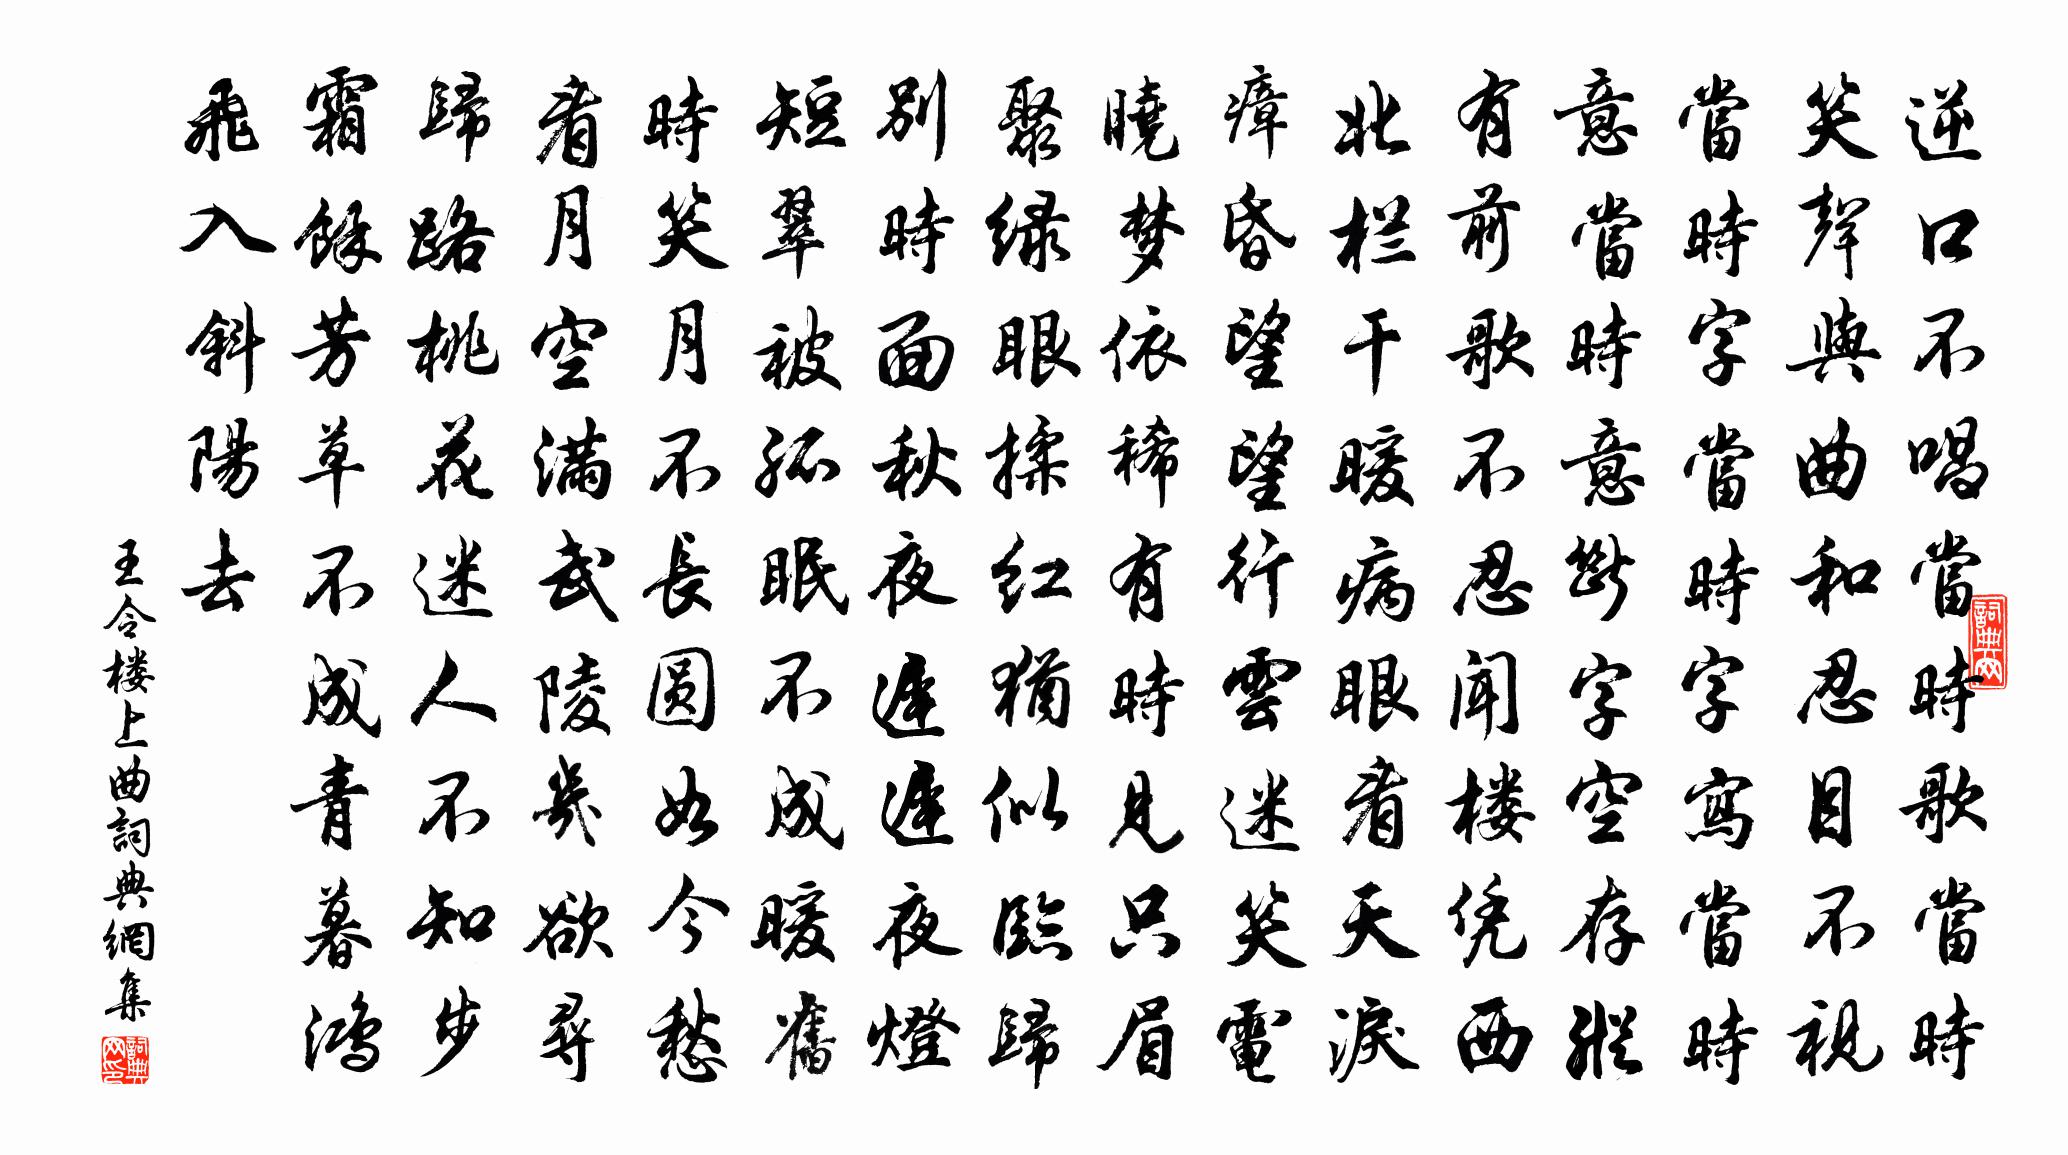 逆口不唱當時歌當時
笑聲與曲和忍目不視
當時字當時字寫當時
意當時意斷字空存縱
有前歌不忍闻楼凭西
北栏干暖病眼看天淚
瘴昏望望行雲迷笑電
曉梦依稀有時見只眉
聚绿眼揉红猶似臨歸
别時面秋夜遲遲夜燈
短翠被孤眠不成暖舊
時笑月不長圆如今愁
看月空满武陵幾欲尋
歸路桃花迷人不知步
霜餘芳草不成青暮鴻
飛入斜陽去
王令楼上曲詞典網集
詞典网
詞典网印